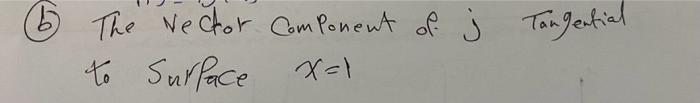 (b) The Vector Component of j Tangential
to Surface x=1